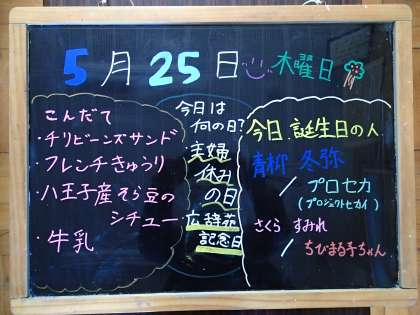 5月25日 木曜日
こんだて
・チリビーンズサンド
・フレンチきゅうり
・八王子産そら豆の
シチュー
・牛乳
今日は
何の日?
主婦
休み
の日
広辞苑
記念日
今日誕生日の人
青柳 冬弥
/ プロセカ
(プロジェクトセカイ)
さくら すみれ
/ ちびまる子ちゃん